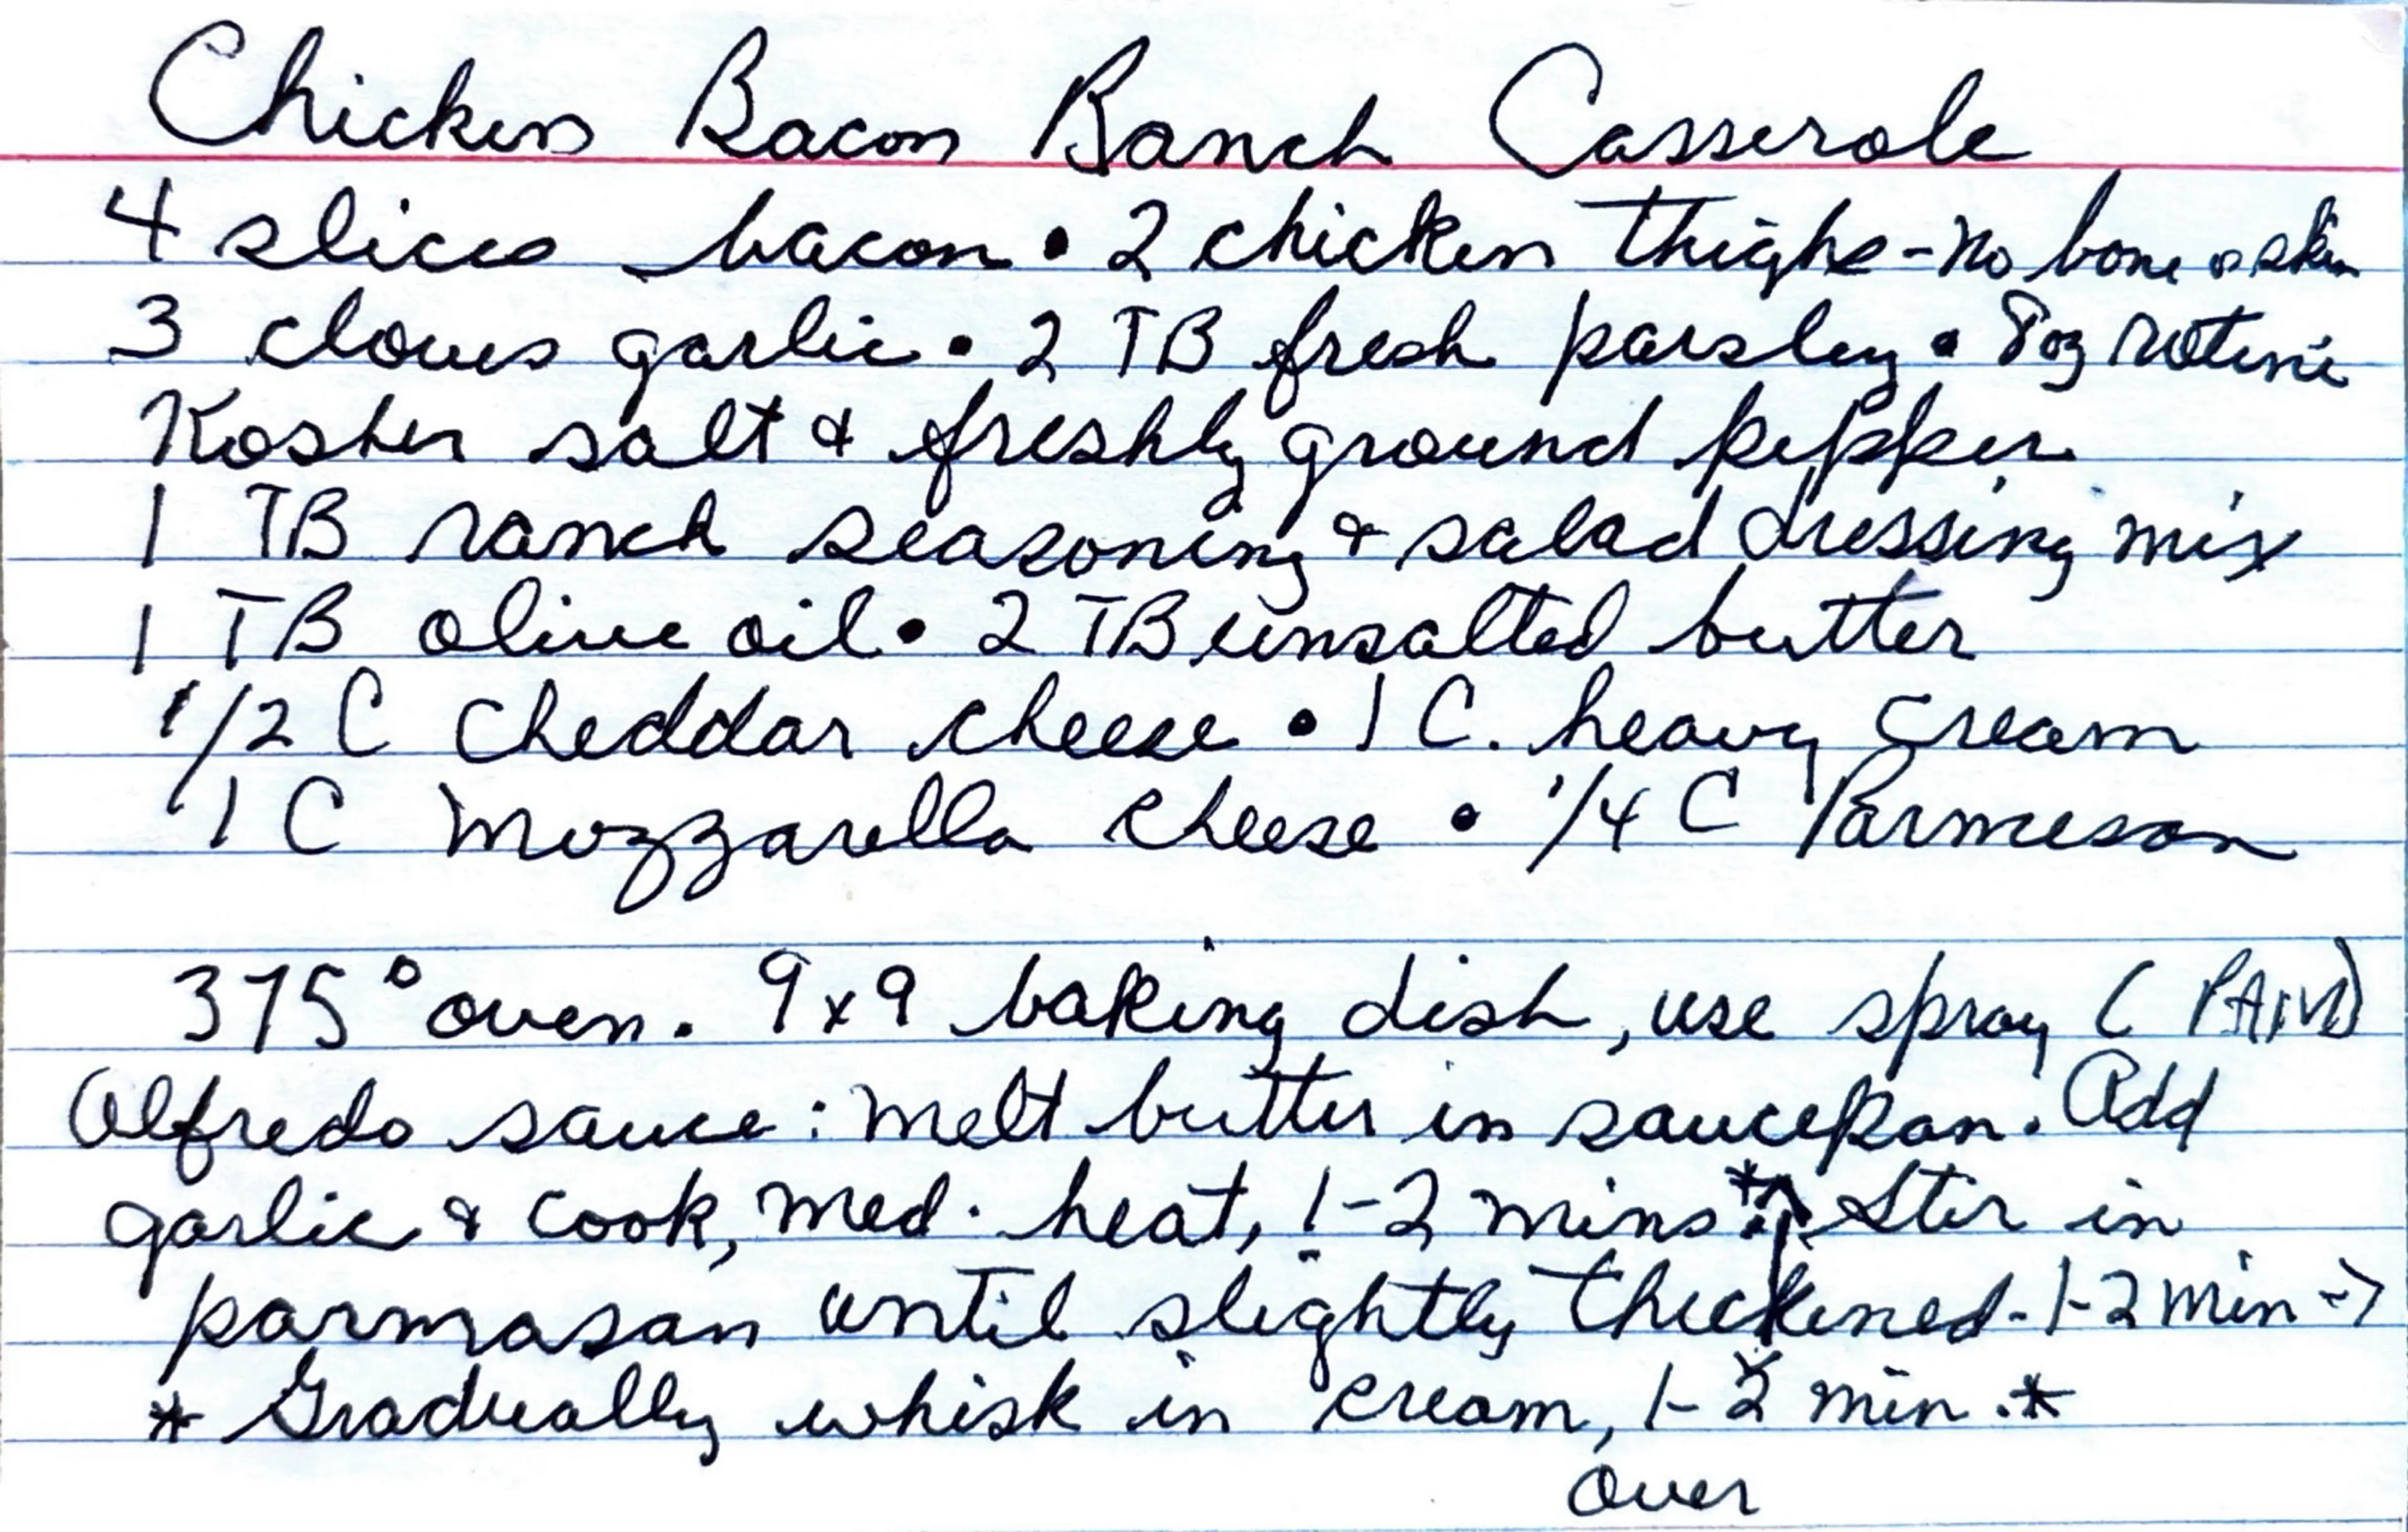 Chicken Bacon Ranch Casserole
4 slices bacon • 2 chicken thighs - no bone or skin
3 cloves garlic • 2 TB fresh parsley • 8oz rotini
Kosher salt & freshly ground pepper
1 TB ranch seasoning & salad dressing mix
1 TB olive oil • 2 TB unsalted butter
1/2 C cheddar cheese • 1 C. heavy cream
1 C Mozzarella cheese • 1/4 C Parmesan
375° oven. 9x9 baking dish, use spray (PAM)
Alfredo sauce: melt butter in saucepan. Add
garlic & cook, med. heat, 1-2 mins * Stir in
parmasan until slightly thickened - 1-2 min ->
* Gradually whisk in cream, 1-2 min. *
over